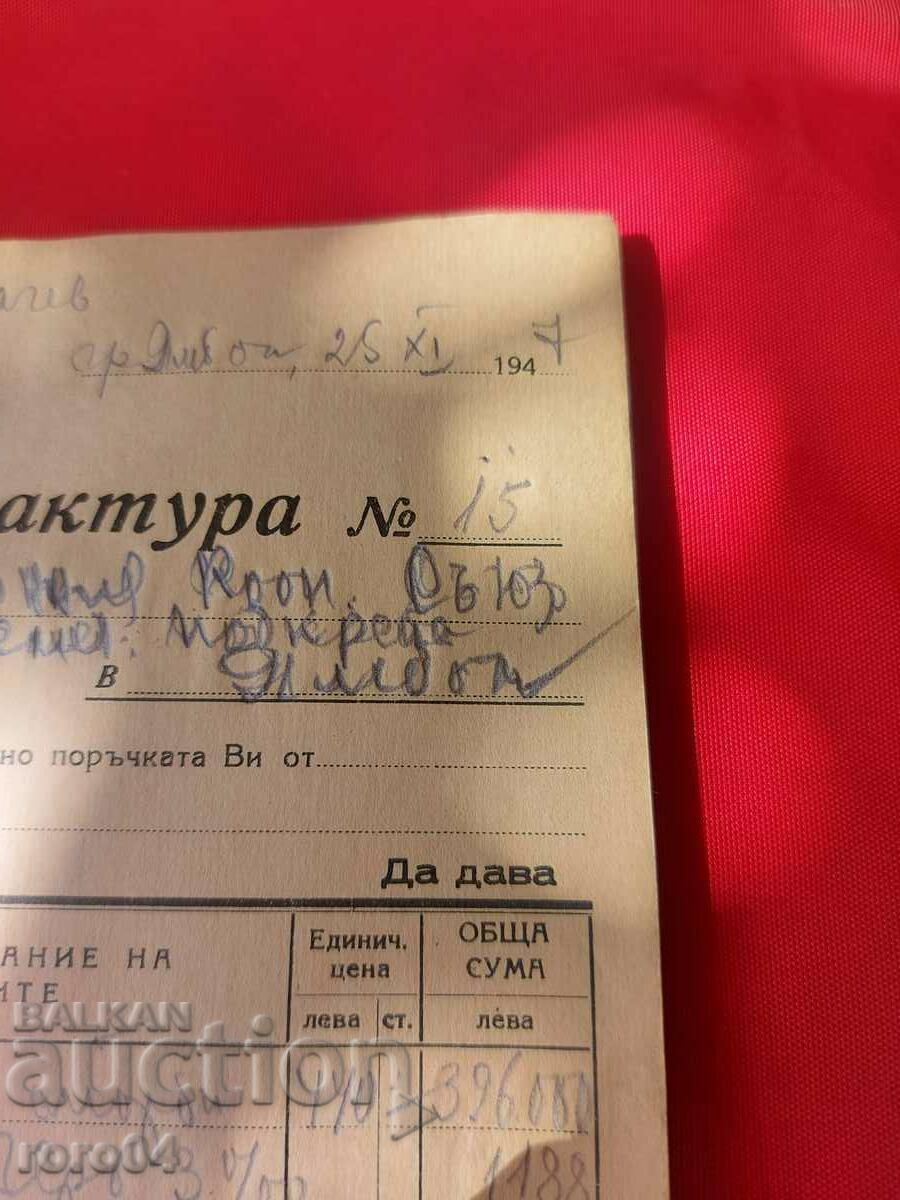 гр Ямбол, 25 XI 1947
актура № 15
Кооп. Съюз
Подкрепа
В Ямбол
но поръчката Ви от
Да дава
АНИЕ НА
ИТЕ
Единич. цена
ОБЩА СУМА
лева ст. лева
110 396.000
3 %00 1188
BALKAN
auction
roro04